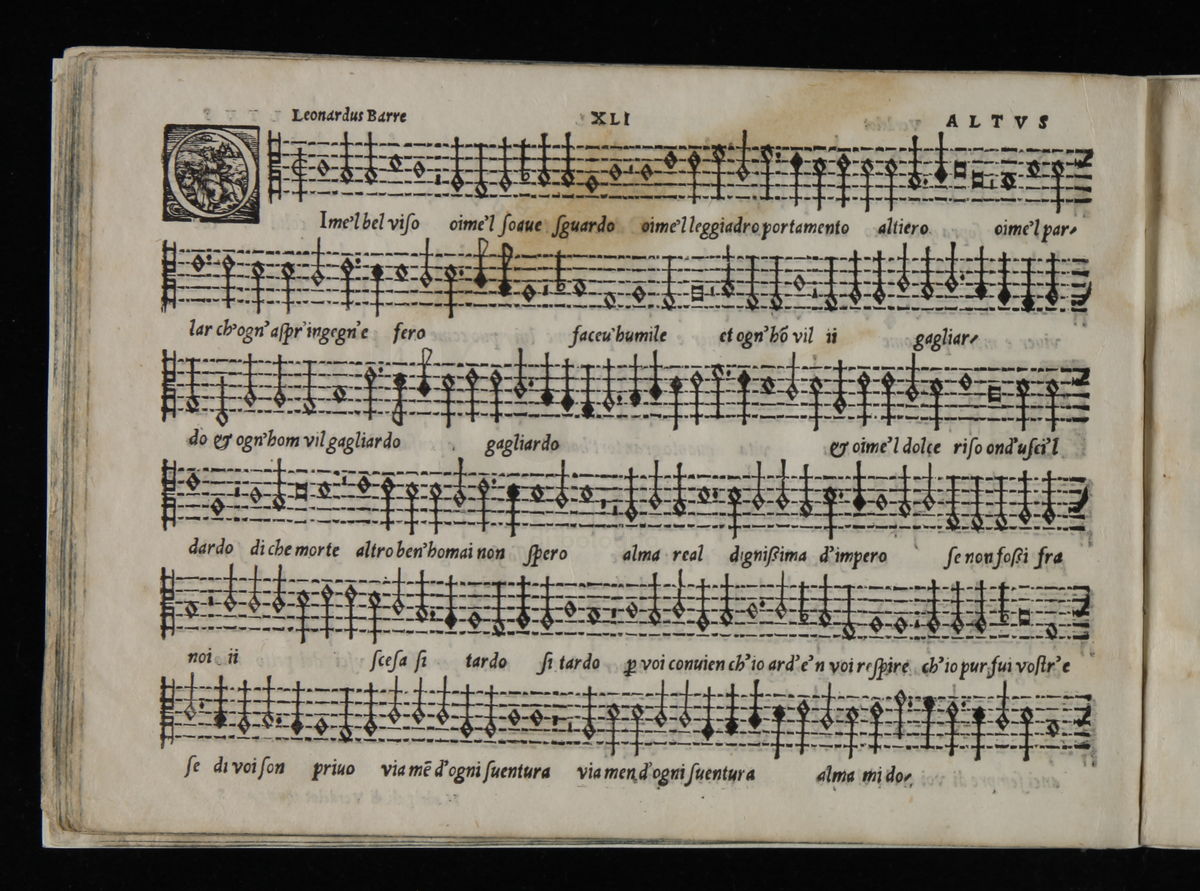 Leonardus Barre XLI ALTVS
O Ime'l bel viso oime'l soaue sguardo oime'l leggiadro portamento altiero oime'l par-
lar ch'ogn' aspr' ingegn' e fero faceu' humile et ogn' hō vil ii gagliar-
do & ogn' hom vil gagliardo gagliardo & oime'l dolce riso ond' usci'l
dardo di che morte altro ben' homai non spero alma real dignißima d' impero se non foßi fra
noi ii scesa si tardo si tardo ꝑ voi conuien ch' io ard' e' n voi respire ch' io pur fui vostr' e
se di voi son priuo via mē d' ogni suentura via men d' ogni suentura alma mi do-